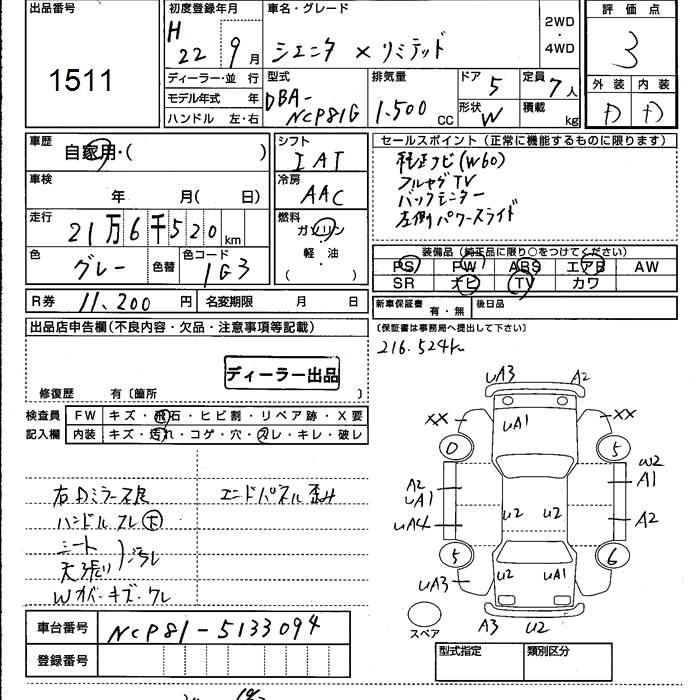 出品番号
1511
初度登録年月
H 22 9月
車名・グレード
シエンタ × リミテッド
2WD
・
4WD
評価点
3
外装 内装
D D
ディーラー・並 行
モデル年式 年
ハンドル 左・右
型式
DBA-
NCP81G
排気量
1.500 cc
ドア 5
形状 W
定員 7人
積載 kg
車歴
自家用・( )
車検
年 月( 日)
走行
21万6千520km
色 グレー 色替 色コード 1G3
シフト
IAT
冷房
AAC
燃料
ガソリン
・
軽 油
( ・ )
セールスポイント (正常に機能するものに限ります)
純正ナビ(W60)
フルセグTV
バックモニター
左側パワースライド
装備品 (純正品に限り○をつけてください)
PS PW ABS エアB AW
SR ナビ TV カワ
R券 11,200 円 名変期限 月 日
新車保証書 有・無 後日品
(保証書は事務局へ提出して下さい)
216.524km
出品店申告欄(不良内容・欠品・注意事項等記載)
ディーラー出品
修復歴 有〔箇所 〕
検査員 FW キズ・飛石・ヒビ割・リペア跡・X要
記入欄 内装 キズ・汚れ・コゲ・穴・スレ・キレ・破レ
右Dミラー不良
エンドパネル歪み
ハンドルスレ下
シート
天張り
Wカバーキズ・ワレ
uA3 A2
XX uA1 XX
0 5
A2 W2
uA1 A1
uA4 U2 U2 A2
5 6
uA3 U2 uA1
スペア
A3 U2
車台番号 NCP81-5133094
登録番号
型式指定 類別区分